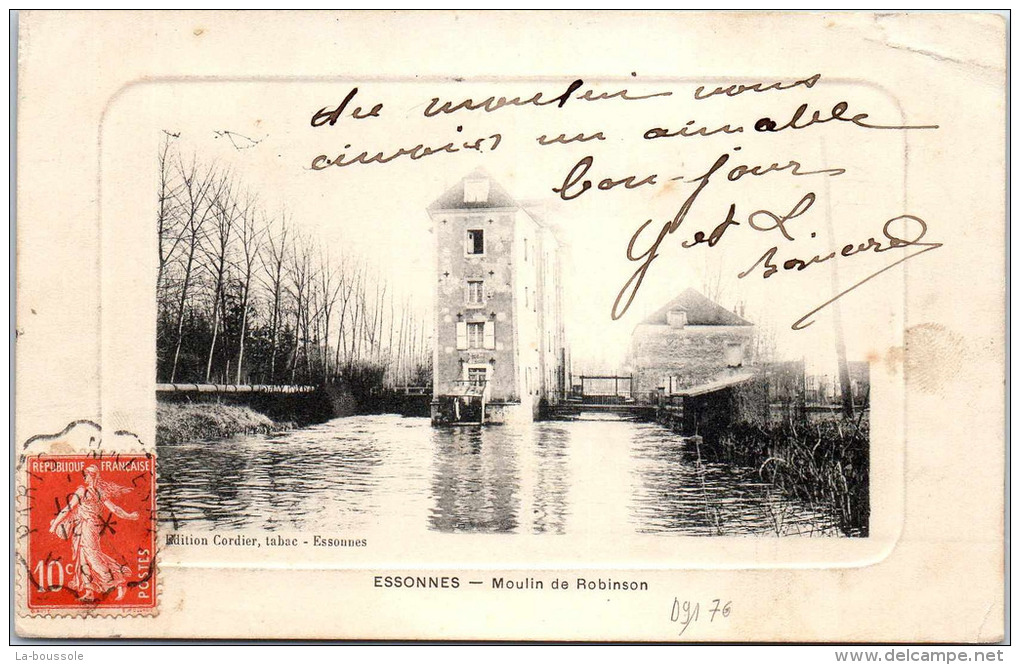 du moulin vous
envoies un aimable
bon-jour
G et L
REPUBLIQUE FRANÇAISE
10 c
POSTES
Edition Cordier, tabac - Essonnes
ESSONNES — Moulin de Robinson
091 76
La-boussole
delcampe.net